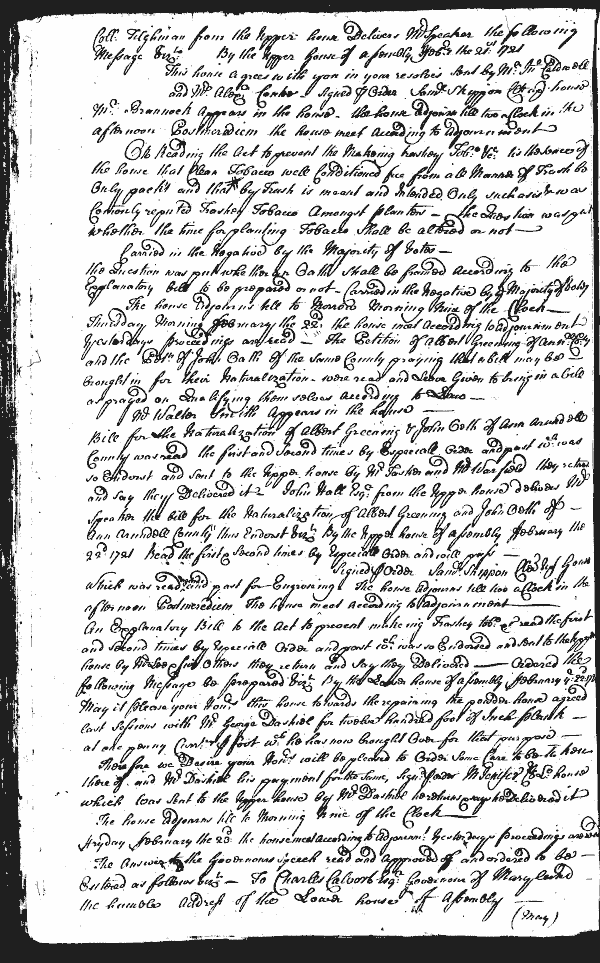 Coll. Tilghman from the Upper house Delivers Mr Speaker the following
Message Vizt. By the Upper house of assembly Febry the 21st 1721
This house agrees with you in your resolves Sent by Mr. Jno. Caldwell
and Mr. Signed p Order Saml. Skippon Cl up house
Mr. Brannock Appears in the house. the house Adjourns till two a Clock in the
afternoon Postmeridiem the house meet According to Adjournment
On Reading the Act to prevent the Making trashey Tobo. &c. tis the sence of
the house that Clean Tobacco well Conditioned free from all Manner of Trash be
Only packt and that by Trash is meant and Intended Only such as is & was
Comonly reputed Trashey Tobacco Amongst planters — the Question was put
whether the time for planting Tobacco Shall be altered or not —
Carried in the Negative by the Majority of Votes —
the Question was put whether an Oath Shall be framed According to the
Explanatory bill to be prepared or not — Carried in the Negative by Majority of Votes
The house Adjourns till to Morrow Morning Nine of the Clock —
Thursday Morning February the 22d. the house meet According to adjournment
Yesterdays proceedings are read — The Petition of Albert Greening of Ann
and the Petn. of John Oath of the Same County praying that a bill may be
brought in for their Naturalization — were read and Leave Given to bring in a bill
as prayed on Qualifying themselves According to Law —
Mr Walter Smith Appears in the house —
Bill for the Naturalization of Albert Greening & John Oath of Ann Arundell
County was read the first and Second times by Especiall Order and past wch. was
so Endorst and Sent to the Upper house by Mr Tasker and Mr Warfield they return
and say they Delivered it. John Hall Esqr. from the Upper house delivers Mr
Speaker the bill for the Naturalization of Albert Greening and John Oath of —
Ann Arundell County thus Endorst Vizt. By the Upper house of assembly February the
22d 1721 Read the first & Second times by Especiall Order and will pass —
Signed p Order Saml. Skippon Cl up house
which was read and past for Engrossing. The house Adjourns till two a Clock in the
afternoon Postmeridiem The house meet According to Adjournment —
An Explanatory Bill to the Act to prevent making Trashey tobo. &c read the first
and Second times by Especiall Order and past wch. was so Endorsed and Sent to the Upper
house by Mr Lee & Six Others they return and Say they Delivered — Ordered the
following Message be prepared Vizt. By the Lower house of assembly February ye 22d
May it please your Honrs this house towards the repairing the powder house agreed
last Sessions with Mr George Dashiel for twelve hundred foot of Inch plank —
at one penny Curt. p foot wch. he has now brought Over for that purpose —
Therefore we Desire your Honrs will be pleased to Order Some Care to be taken
thereof and Mr Dashiel his payment for the Same, Signd p order Cl Lo. house
which was Sent to the Upper house by Mr Dashiel he returns says he Delivered it
The house adjourns till to Morning Nine of the Clock —
Fryday February the 23d. the house meet according to Adjournmt. Yesterdays proceedings
The Answer to the Governours Speech read and Approved of and ordered to be —
Entered as follows Vizt — To Charles Calvert Esqr. Governour of Maryland
the humble Address of the Lower house of Assembly —
(May)